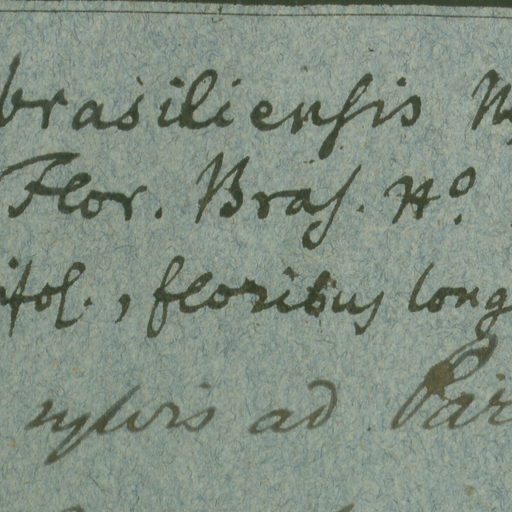 brasiliensis
Flor. Bras. No.
ifol., floribus long
sylvis ad Par